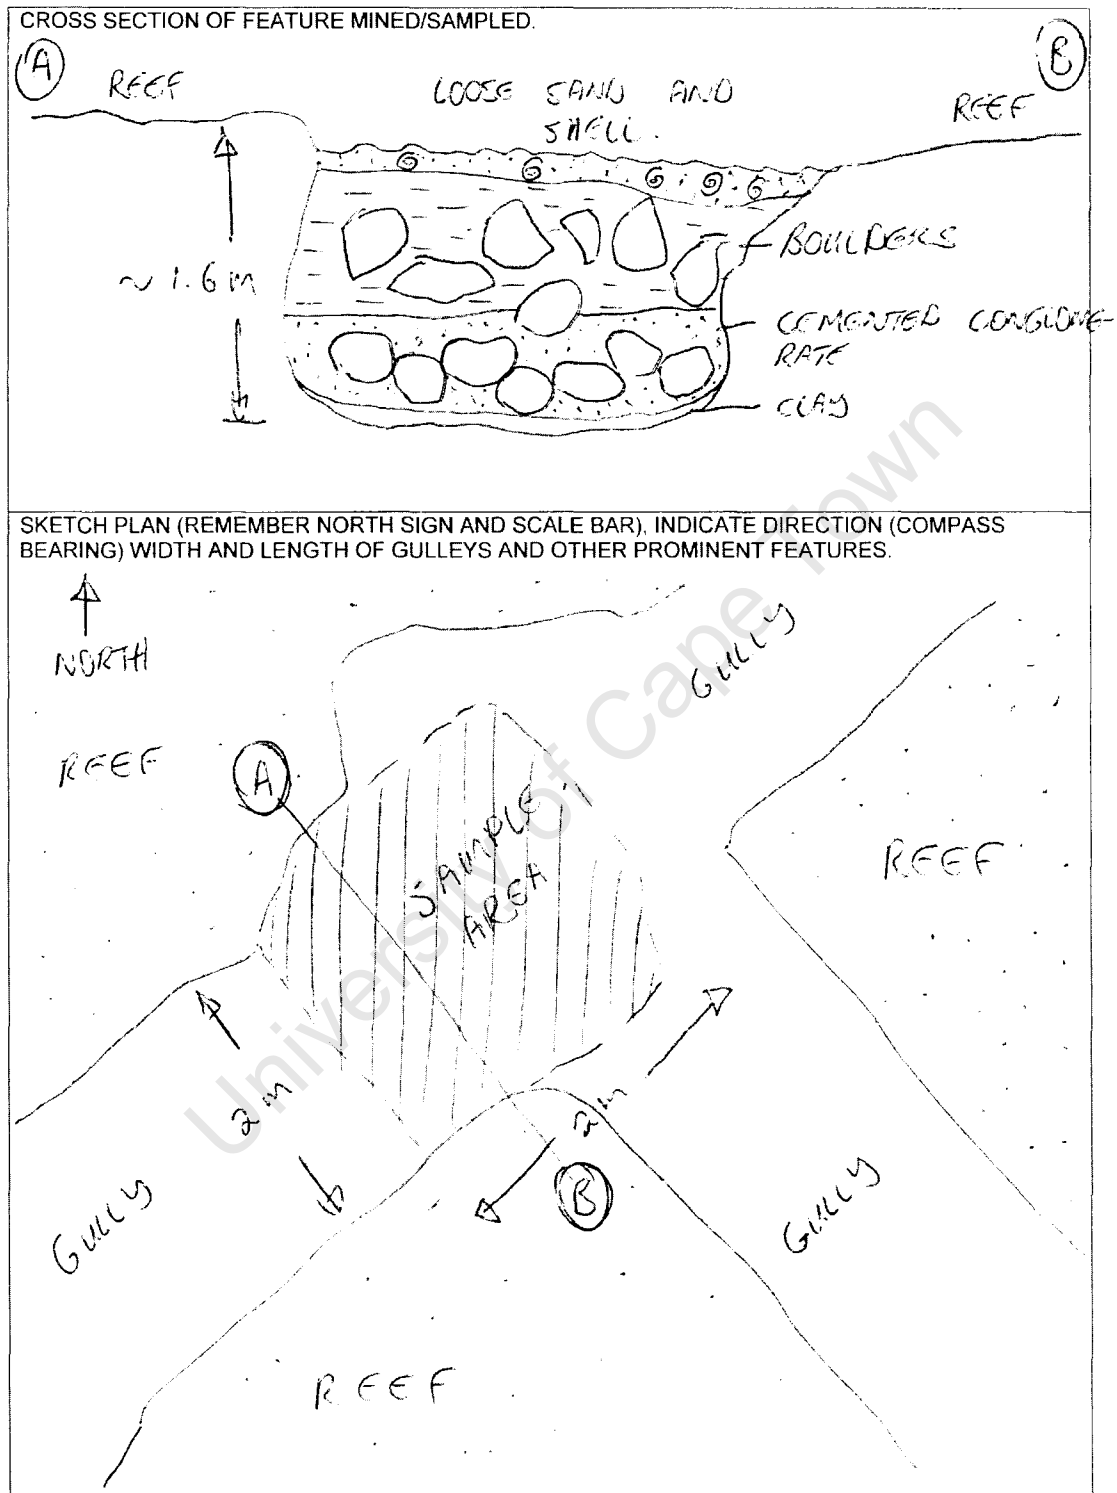 CROSS SECTION OF FEATURE MINED/SAMPLED.
A
B
REEF
LOOSE SAND AND
SHELL.
REEF
BOULDERS
~ 1.6 m
CEMENTED CONGLOME-
RATE
CLAY
SKETCH PLAN (REMEMBER NORTH SIGN AND SCALE BAR), INDICATE DIRECTION (COMPASS
BEARING) WIDTH AND LENGTH OF GULLEYS AND OTHER PROMINENT FEATURES.
NORTH
GULLY
REEF
A
SAMPLE
AREA
REEF
2 m
2 m
B
GULLY
GULLY
REEF
University of Cape Town